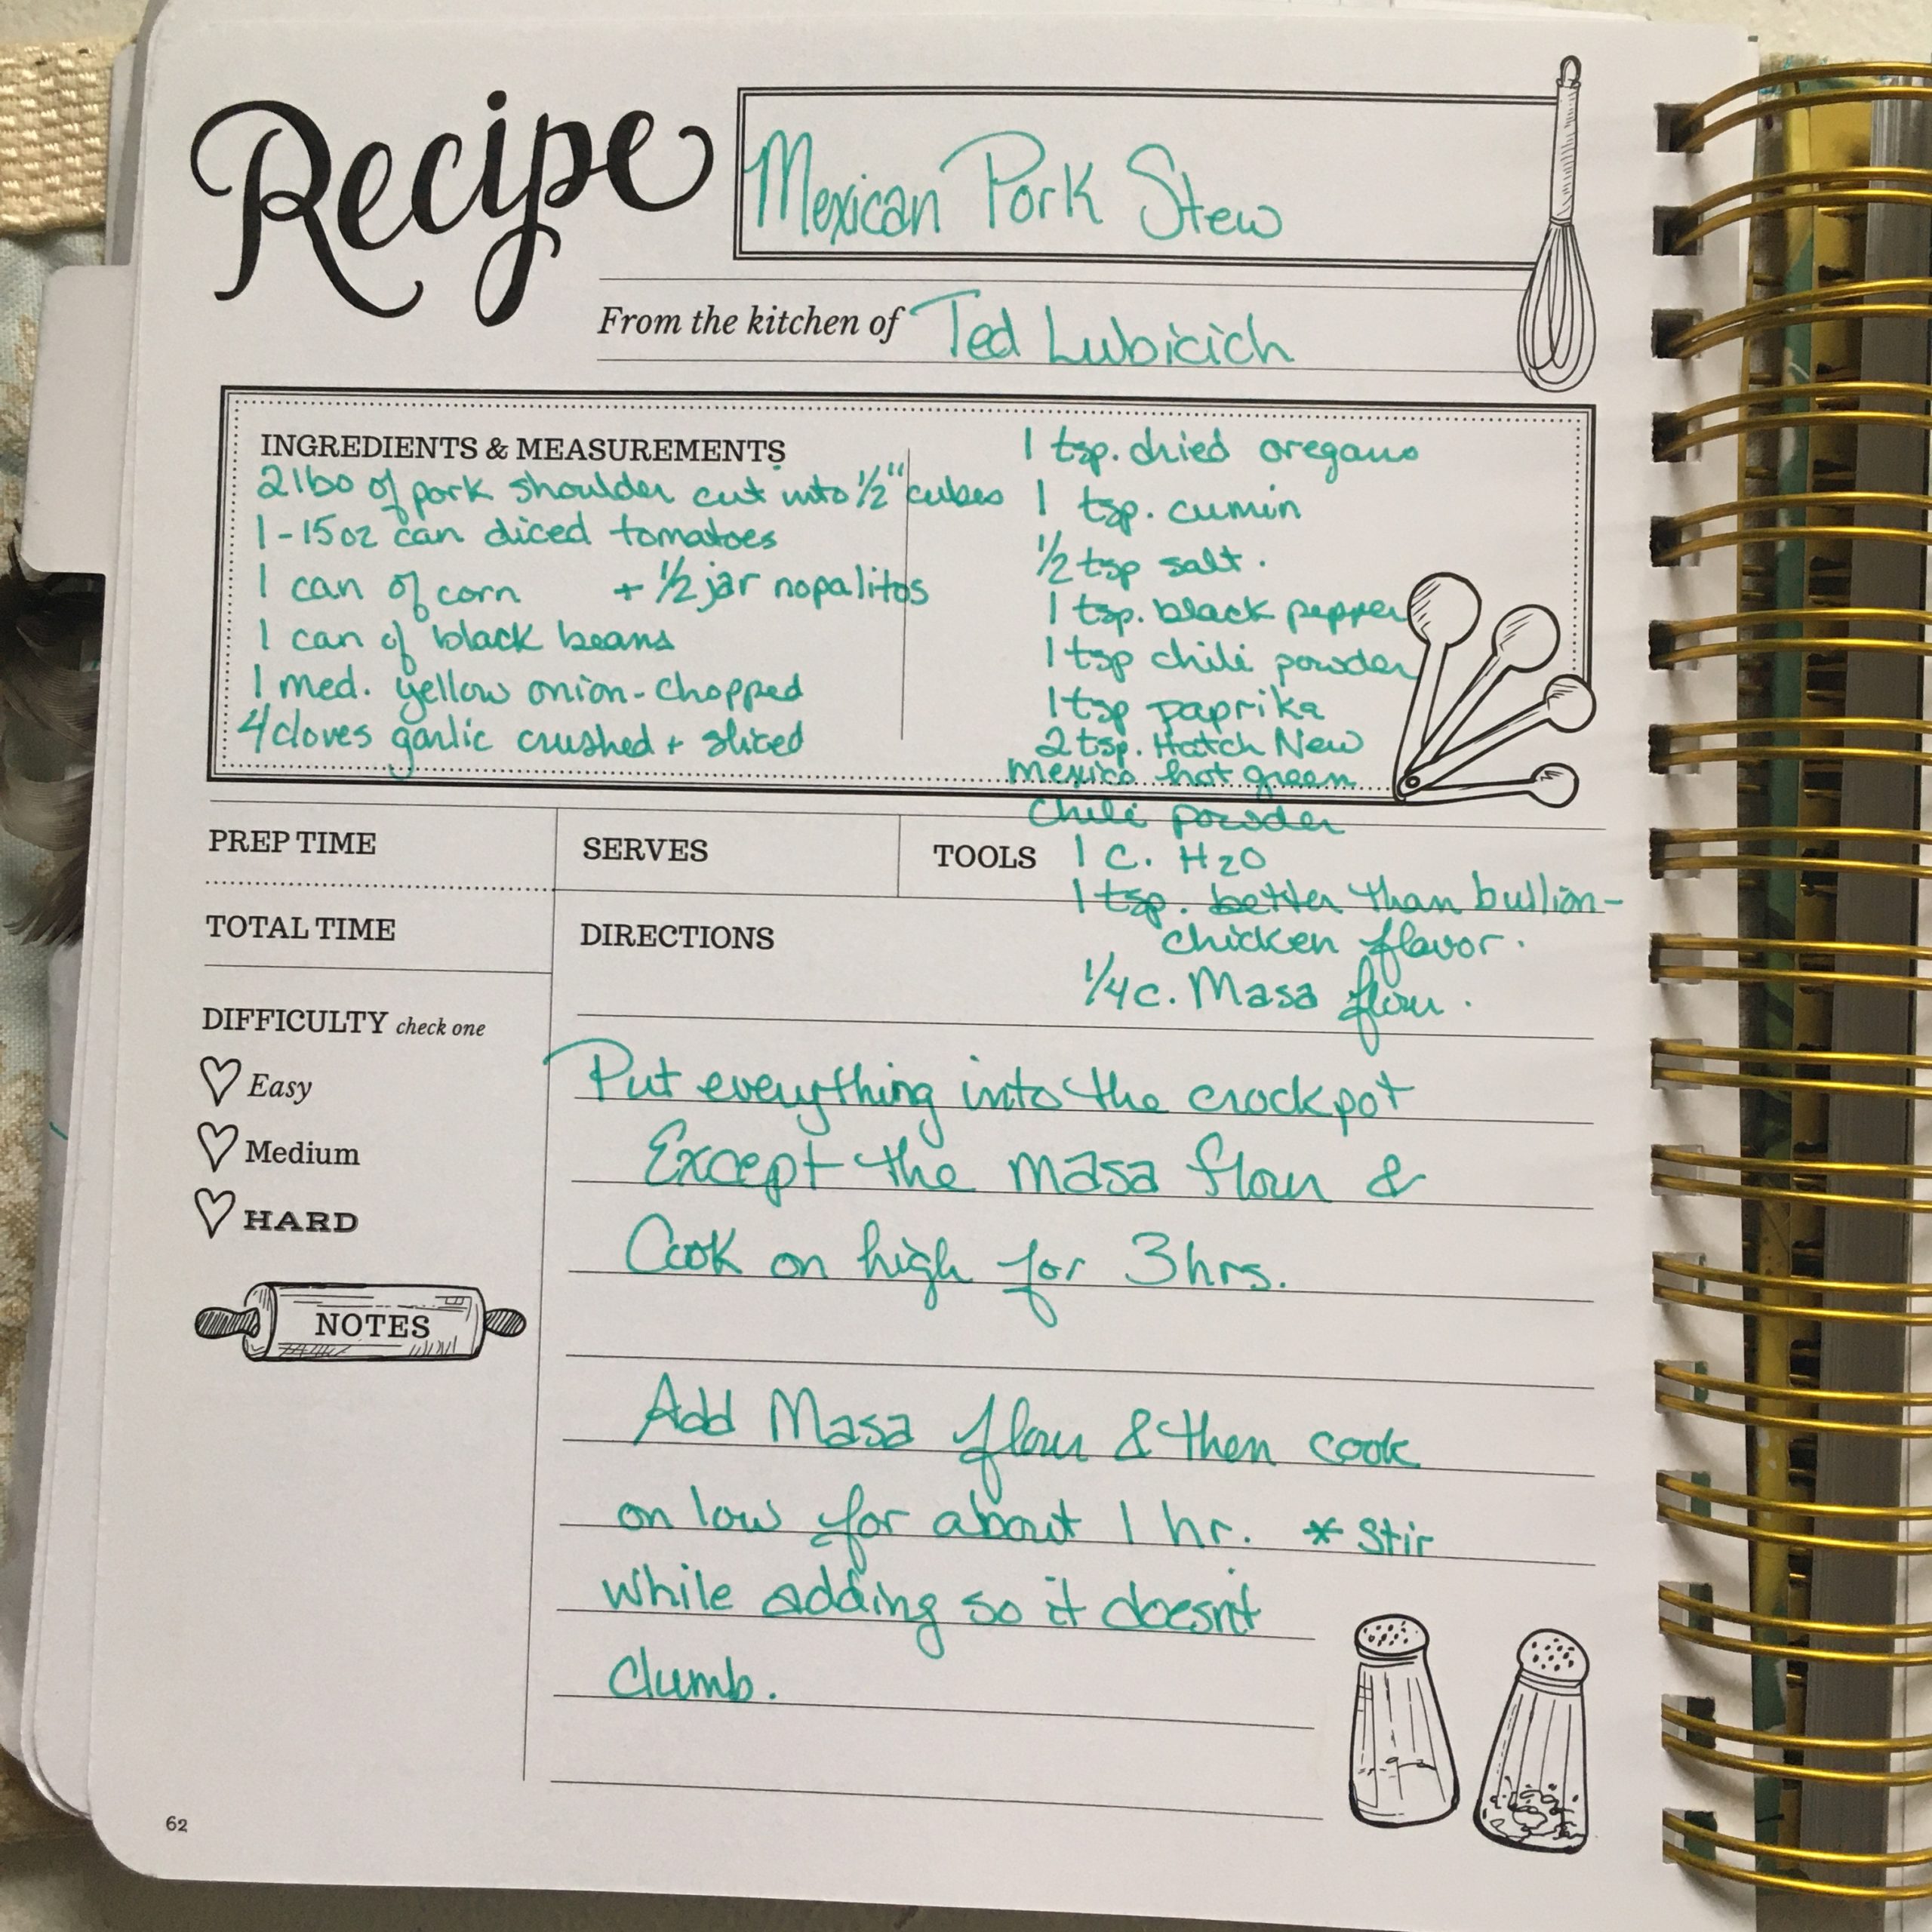 Recipe
Mexican Pork Stew
From the kitchen of Ted Lubicich
INGREDIENTS & MEASUREMENTS
2 lbs of pork shoulder cut into 1/2" cubes
1-15oz can diced tomatoes
1 can of corn + 1/2 jar nopalitos
1 can of black beans
1 med. yellow onion - chopped
4 cloves garlic crushed + sliced
1 tsp. dried oregano
1 tsp. cumin
1/2 tsp salt.
1 tsp. black pepper
1 tsp chili powder
1 tsp paprika
2 tsp. Hatch New
Mexico hot green
Chili powder
1 C. H2O
1 tsp. better than bullion-
chicken flavor.
1/4 c. Masa flour.
PREP TIME
SERVES
TOOLS
TOTAL TIME
DIFFICULTY check one
Easy
Medium
HARD
NOTES
DIRECTIONS
Put everything into the crockpot
Except the masa flour &
Cook on high for 3 hrs.
Add Masa flour & then cook
on low for about 1 hr. * Stir
while adding so it doesn't
Clumb.
62